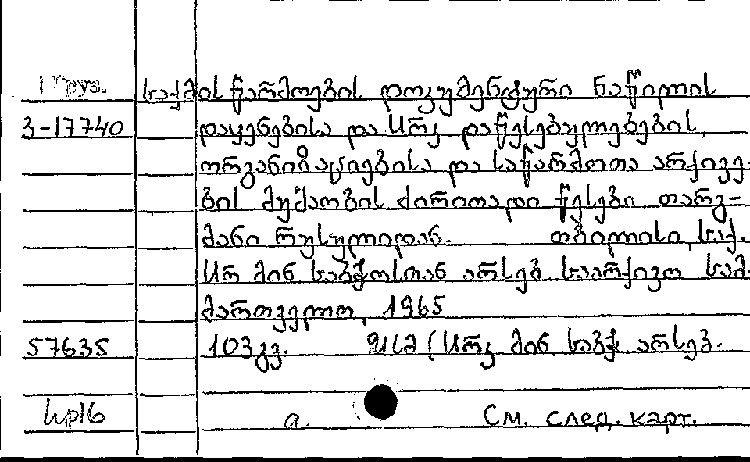 Груз.
საქმის წარმოების დოკუმენტური ნაწილის
3-17740 დაყენებისა და სსრკ დაწესებულებების,
ორგანიზაციებისა და საწარმოთა არქივე-
ბის მუშაობის ძირითადი წესები თარგ-
მანი რუსულიდან. თბილისი, საქ.
სსრ მინ საბჭოსთან არსებ საარქივო სამ-
მართველო, 1965
57635 103 გვ. (სსრკ მინ საბჭ არსებ.
а. См. след. карт.